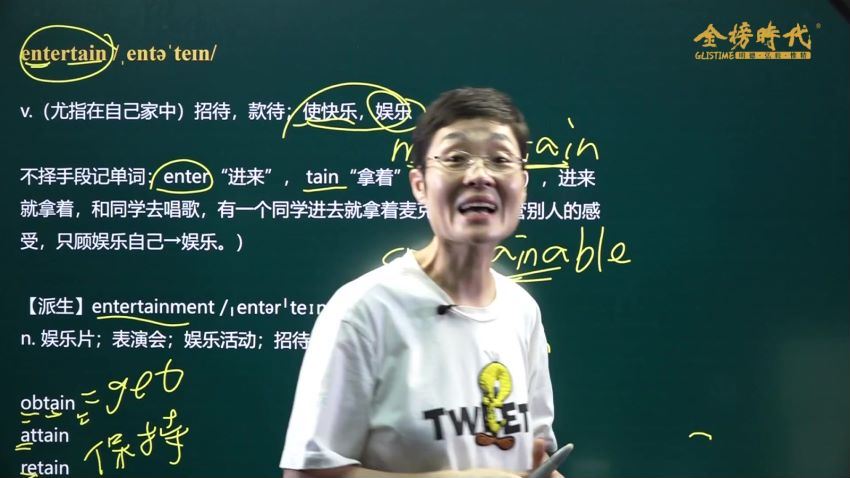 金榜時代®
GLISTIME
entertain /ˌentəˈteɪn/
v.（尤指在自己家中）招待，款待；使快乐，娱乐
ain
不择手段记单词：enter“进来”，tain“拿着”，进来
就拿着，和同学去唱歌，有一个同学进去就拿着麦 别人的感
受，只顾娱乐自己→娱乐。）
ainable
【派生】entertainment /ˌentərˈteɪn
n. 娱乐片；表演会；娱乐活动；招待
obtain = get
attain
保持
retain
TWEET